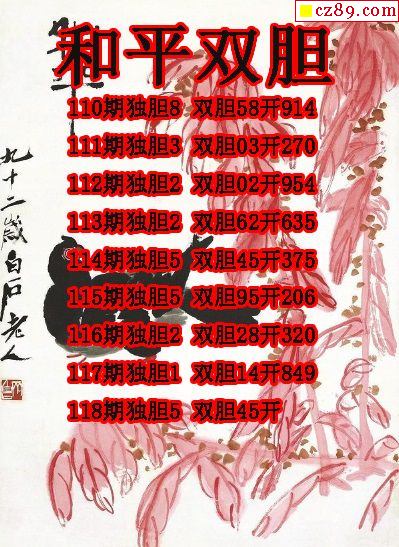 cz89.com
和平双胆
110期独胆8 双胆58开914
111期独胆3 双胆03开270
112期独胆2 双胆02开954
113期独胆2 双胆62开635
114期独胆5 双胆45开375
115期独胆5 双胆95开206
116期独胆2 双胆28开320
117期独胆1 双胆14开849
118期独胆5 双胆45开
九十二岁白石老人